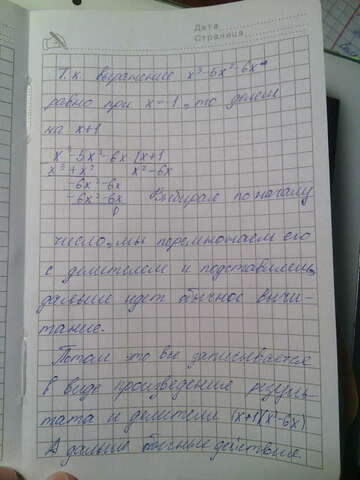 Дата
Страница
Т.к. выражение x³-5x²-6x
равно при x=-1, то делим
на x+1
x³-5x²-6x | x+1
x³+x² x²-6x
-6x²-6x
-6x²-6x Выбирая по началу
0
число, мы перемножаем его
с делителем и подставляем,
дальше идет обычное вычи-
тание.
Потом это все записывается
в виде произведение резуль-
тата и делителя (x+1)(x²-6x)
А дальше обычные действие